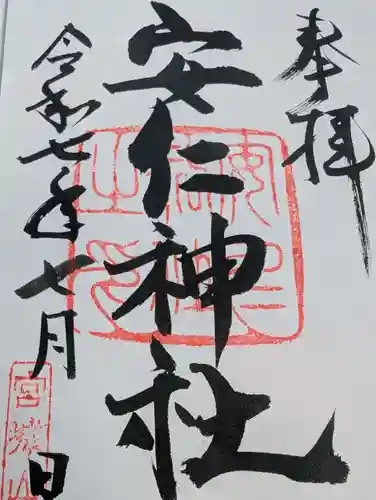 奉拝
安仁神社
令和七年七月
日